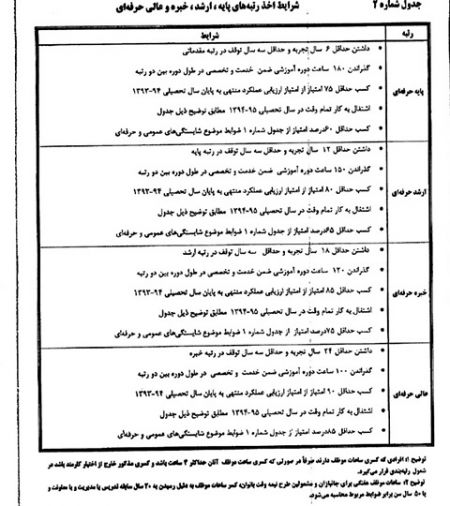 جدول شماره ۲
شرایط اخذ رتبه‌های پایه ، ارشد ، خبره و عالی حرفه‌ای
رتبه
شرایط
پایه حرفه‌ای
داشتن حداقل ۶ سال تجربه و حداقل سه سال توقف در رتبه مقدماتی
گذراندن ۱۸۰ ساعت دوره آموزشی ضمن خدمت و تخصصی در طول دوره بین دو رتبه
کسب حداقل ۷۵ امتیاز از امتیاز ارزیابی عملکرد منتهی به پایان سال تحصیلی ۹۴-۱۳۹۳
اشتغال به کار تمام وقت در سال تحصیلی ۹۵-۱۳۹۴ مطابق توضیح ذیل جدول
کسب حداقل ۶۰درصد امتیاز از جدول شماره ۱ ضوابط موضوع شایستگی‌های عمومی و حرفه‌ای
ارشد حرفه‌ای
داشتن حداقل ۱۲ سال تجربه و حداقل سه سال توقف در رتبه پایه
گذراندن ۱۵۰ ساعت دوره آموزشی ضمن خدمت و تخصصی در طول دوره بین دو رتبه
کسب حداقل ۸۰ امتیاز از امتیاز ارزیابی عملکرد منتهی به پایان سال تحصیلی ۹۴-۱۳۹۳
اشتغال به کار تمام وقت در سال تحصیلی ۹۵-۱۳۹۴ مطابق توضیح ذیل جدول
کسب حداقل ۶۵درصد امتیاز از جدول شماره ۱ ضوابط موضوع شایستگی‌های عمومی و حرفه‌ای
خبره حرفه‌ای
داشتن حداقل ۱۸ سال تجربه و حداقل سه سال توقف در رتبه ارشد
گذراندن ۱۲۰ ساعت دوره آموزشی ضمن خدمت و تخصصی در طول دوره بین دو رتبه
کسب حداقل ۸۵ امتیاز از امتیاز ارزیابی عملکرد منتهی به پایان سال تحصیلی ۹۴-۱۳۹۳
اشتغال به کار تمام وقت در سال تحصیلی ۹۵-۱۳۹۴ مطابق توضیح ذیل جدول
کسب حداقل ۷۵درصد امتیاز از جدول شماره ۱ ضوابط موضوع شایستگی‌های عمومی و حرفه‌ای
عالی حرفه‌ای
داشتن حداقل ۲۴ سال تجربه و حداقل سه سال توقف در رتبه خبره
گذراندن ۱۰۰ ساعت دوره آموزشی ضمن خدمت و تخصصی در طول دوره بین دو رتبه
کسب حداقل ۹۰ امتیاز از امتیاز ارزیابی عملکرد منتهی به پایان سال تحصیلی ۹۴-۱۳۹۳
اشتغال به کار تمام وقت در سال تحصیلی ۹۵-۱۳۹۴ مطابق توضیح ذیل جدول
کسب حداقل ۸۵درصد امتیاز از جدول شماره ۱ ضوابط موضوع شایستگی‌های عمومی و حرفه‌ای
توضیح ۱: افرادی که کسری ساعات موظف دارند، صرفاً در صورتی که کسری ساعت موظف آنان حداکثر ۴ ساعت باشد و کسری مذکور خارج از اختیار کارمند باشد در
شمول رتبه‌بندی قرار می‌گیرد.
توضیح ۲: ساعات موظف هفتگی برای جانبازان و مشمولین طرح نیمه وقت بانوان، کسر ساعات موظف به دلیل رسیدن به ۲۰ سال سابقه تدریس یا مدیریت و یا معاونت و
یا ۵۰ سال سن برابر ضوابط مربوط محاسبه می‌شود.